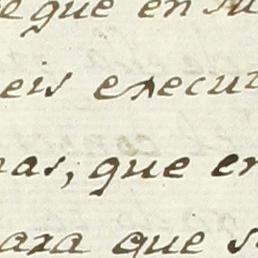 que en su
eis execut
nas, que en
para que s